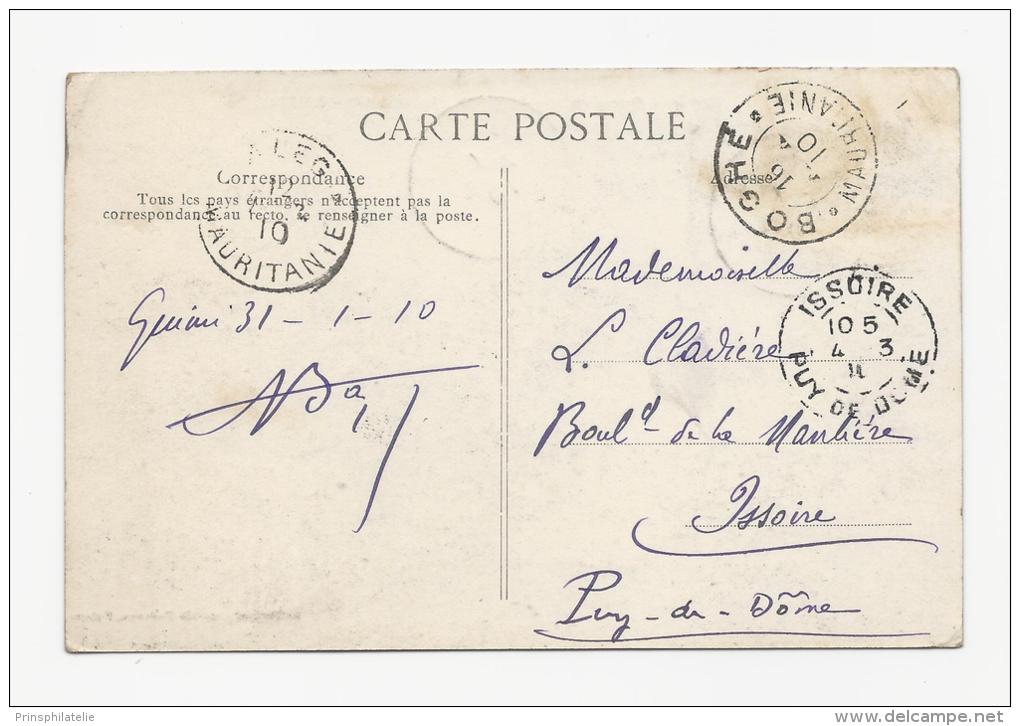 CARTE POSTALE
ALEG
12 2
10
MAURITANIE
BOGHE * MAURITANIE *
16
10
Correspondance
Adresse
Tous les pays étrangers n'acceptent pas la
correspondance au recto. Se renseigner à la poste.
Mademoiselle
ISSOIRE
10 5
4 - 3
11
PUY DE DOME
31 - 1 - 10
L. Cladière
Boul.d de la
Issoire
Puy-de-Dôme
Prinsphilatelie
www.delcampe.net